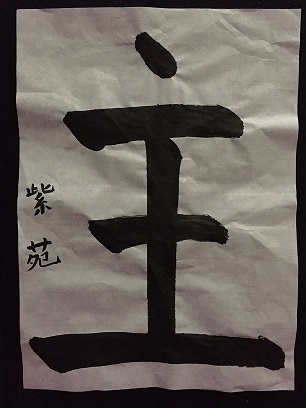 主
紫苑